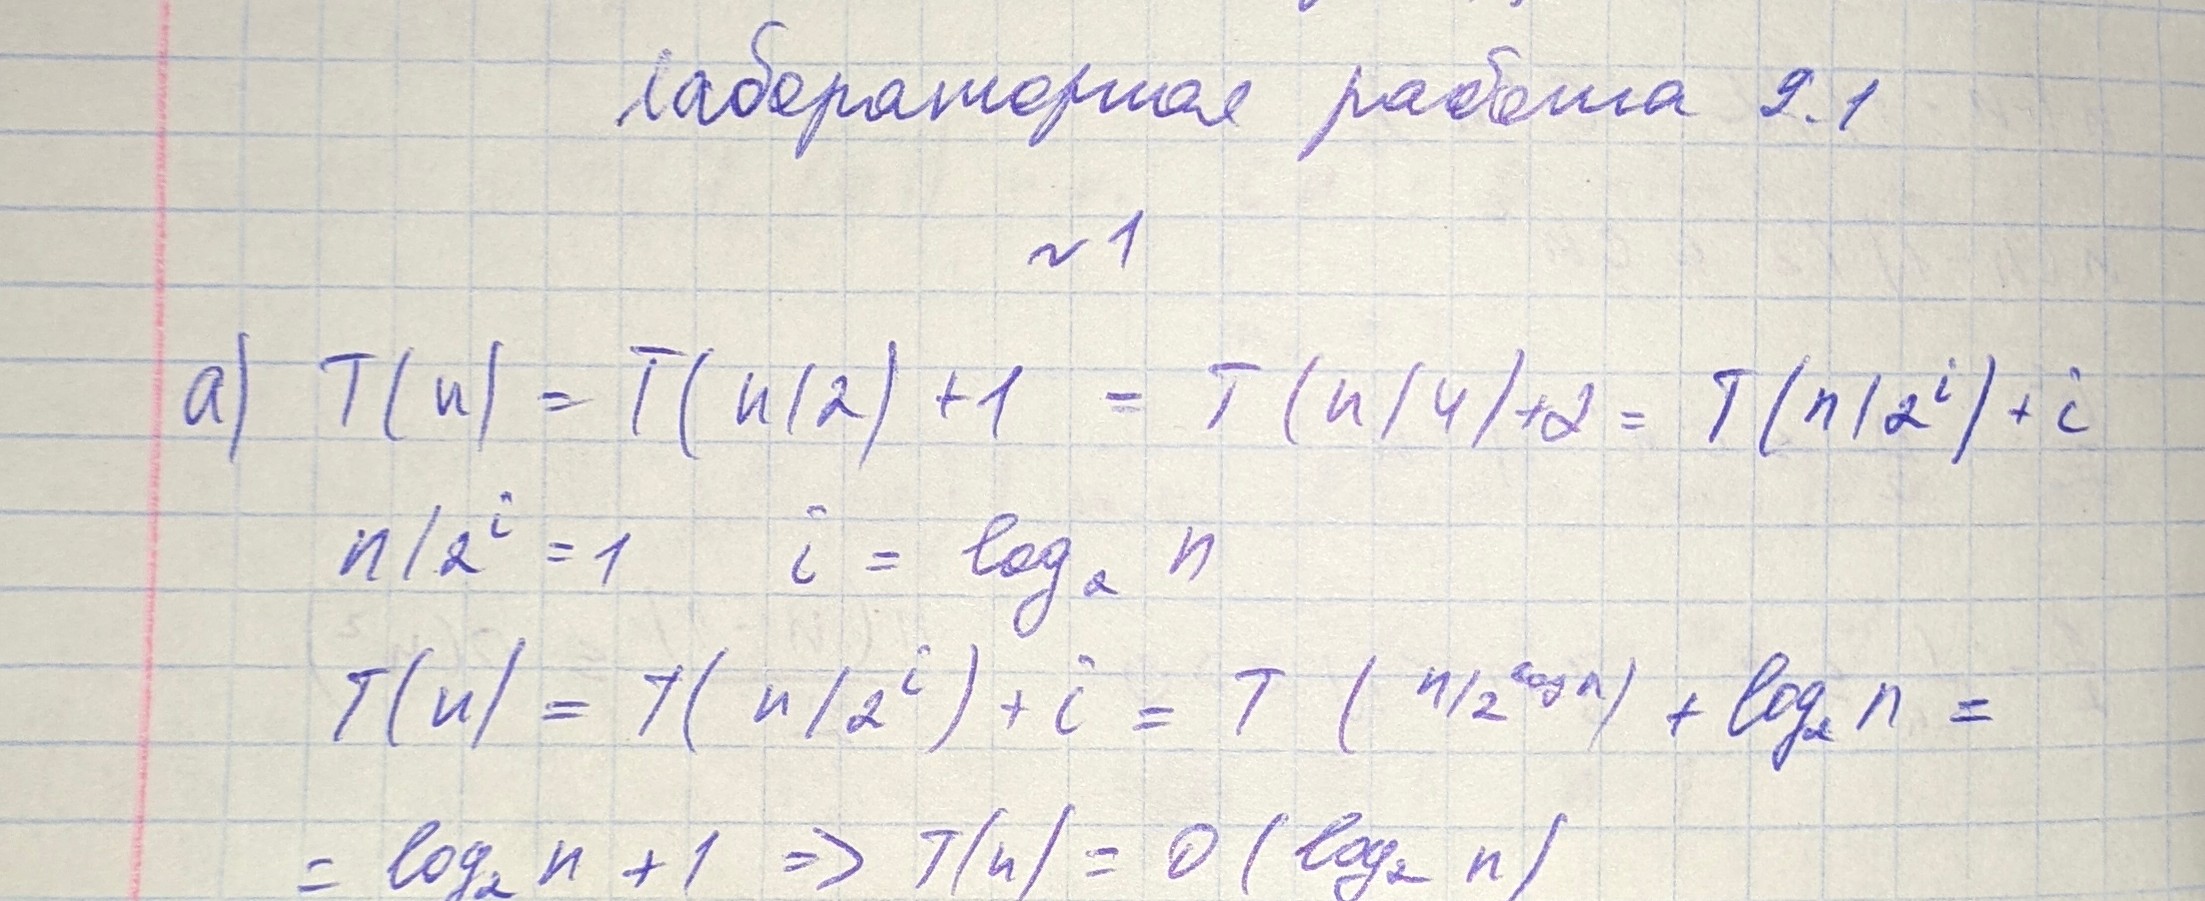 Лабораторная работа 2.1
~1
а) T(n) = T(n/2) +1 = T(n/4)+2 = T(n/2^i)+i
n/2^i = 1 i = log₂ n
T(n) = T(n/2^i)+i = T (n/2^log n) + log₂ n =
= log₂ n + 1 => T(n) = O(log₂ n)